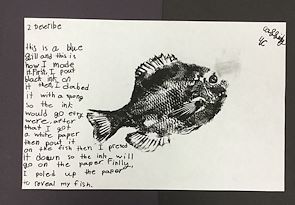 2 Describe
this is a blue
gill and this is
how I made
it. First, I pout
black ink on
it then I dabed
it with a spong
so the ink
would go evry
were, after
that I got
a white paper
then pout it
on the fish then I presd
it down so the ink will
go on the paper Finlly,
I poled up the paper
to reveal my fish.
4C